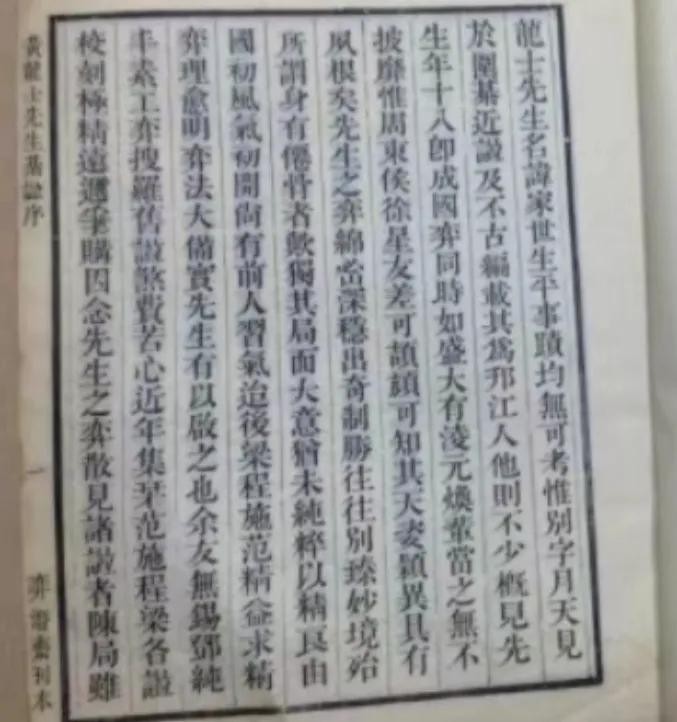 龍士先生名諱家世生平事蹟均無可考惟別字月天見
於圍棊近譜及不古編載其爲邗江人他則不少概見先
生年十八卽成國弈同時如盛大有淩元煥輩當之無不
披靡惟周東侯徐星友差可頡頏可知其天姿穎異具有
夙根矣先生之弈綿密深穩出奇制勝往往別臻妙境殆
所謂身有僊骨者歟獨其局面大意猶未純粹以精良由
國初風氣初開尙有前人習氣迨後梁程施范精益求精
弈理愈明弈法大備實先生有以啟之也余友無錫鄧純
丰素工弈搜羅舊譜煞費苦心近年集栞范施程梁各譜
校刻極精遠邇爭購因念先生之弈散見諸譜者陳局雖
黃龍士先生棊譜序
一
弈潛齋刊本